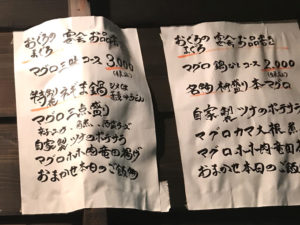 おくろの 宴会お品書き
まぐろ
マグロ三昧コース 3,000
(税込)
特製ねぎま鍋
マグロ三点盛り
自家製ツナのポテサラ
マグロホホ肉竜田揚げ
おまかせ本日のご飯物
おくろの 宴会お品書き
まぐろ
マグロ鍋なしコース 2,000
(税込)
名物 桝盛り本マグロ
自家製ツナのポテサラ
マグロカマ大根煮
マグロホホ肉竜田揚
おまかせ本日のご飯